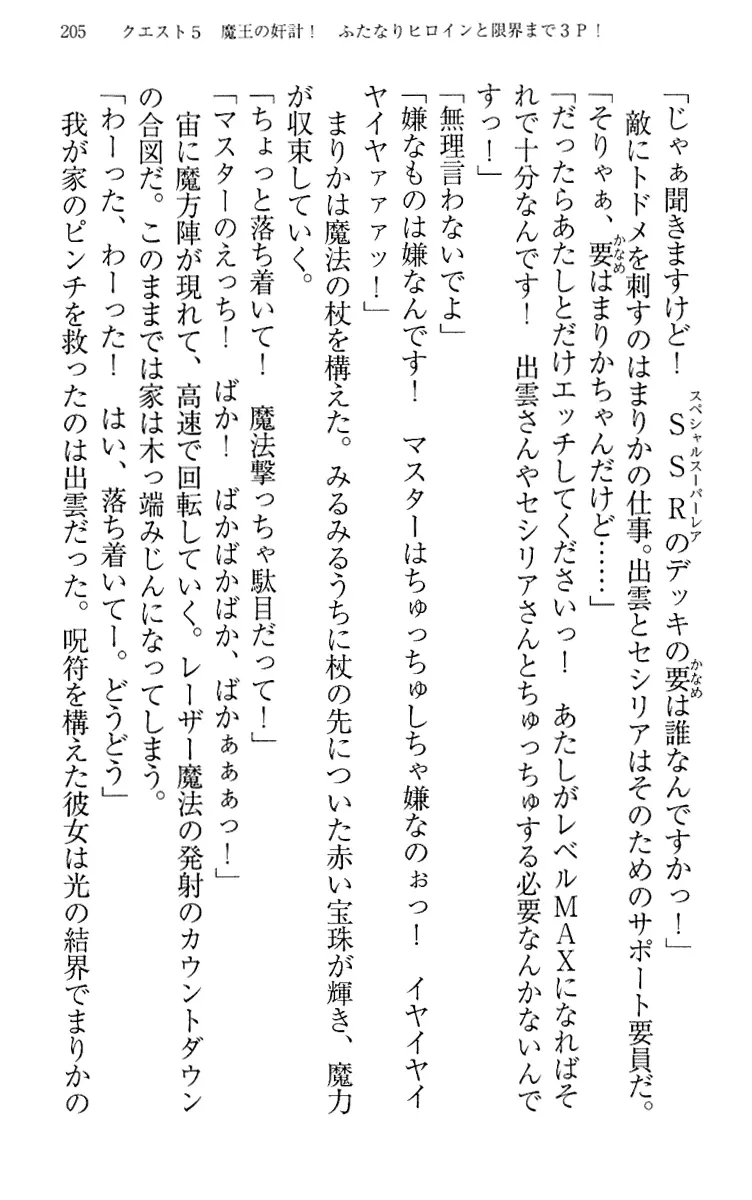 205　クエスト5　魔王の奸計！　ふたなりヒロインと限界まで3P！
「じゃぁ聞きますけど！　SSRのデッキの要は誰なんですかっ！」
スペシャルスーパーレア
かなめ
　敵にトドメを刺すのはまりかの仕事。出雲とセシリアはそのためのサポート要員だ。
「そりゃぁ、要はまりかちゃんだけど……」
かなめ
「だったらあたしとだけエッチしてくださいっ！　あたしがレベルMAXになればそ
れで十分なんです！　出雲さんやセシリアさんとちゅっちゅする必要なんかないんで
すっ！」
「無理言わないでよ」
「嫌なものは嫌なんです！　マスターはちゅっちゅしちゃ嫌なのぉっ！　イヤイヤイ
ヤイヤァァァッ！」
　まりかは魔法の杖を構えた。みるみるうちに杖の先についた赤い宝珠が輝き、魔力
が収束していく。
「ちょっと落ち着いて！　魔法撃っちゃ駄目だって！」
「マスターのえっち！　ばか！　ばかばかばか、ばかぁぁぁっ！」
　宙に魔方陣が現れて、高速で回転していく。レーザー魔法の発射のカウントダウン
の合図だ。このままでは家は木っ端みじんになってしまう。
「わーった、わーった！　はい、落ち着いてー。どうどう」
　我が家のピンチを救ったのは出雲だった。呪符を構えた彼女は光の結界でまりかの